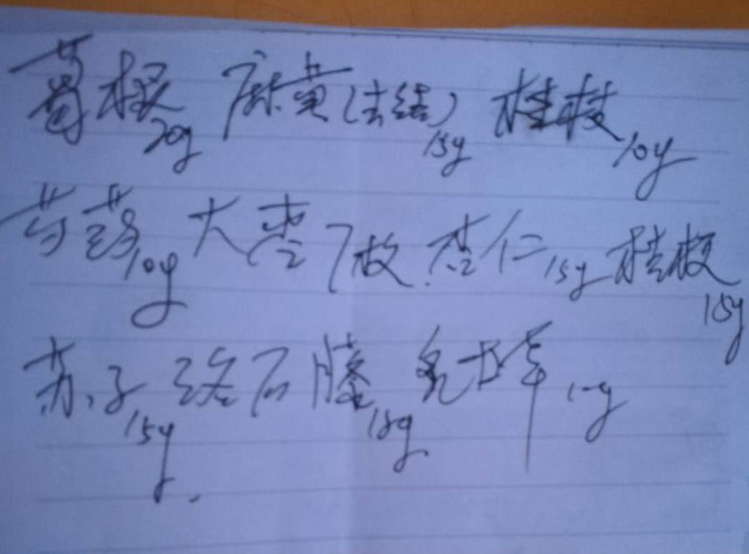 葛根20g 麻黄(去结)15g 桂枝10g
芍药10g 大枣7枚 杏仁15g 桂枝15g
苏子15g 络石藤15g